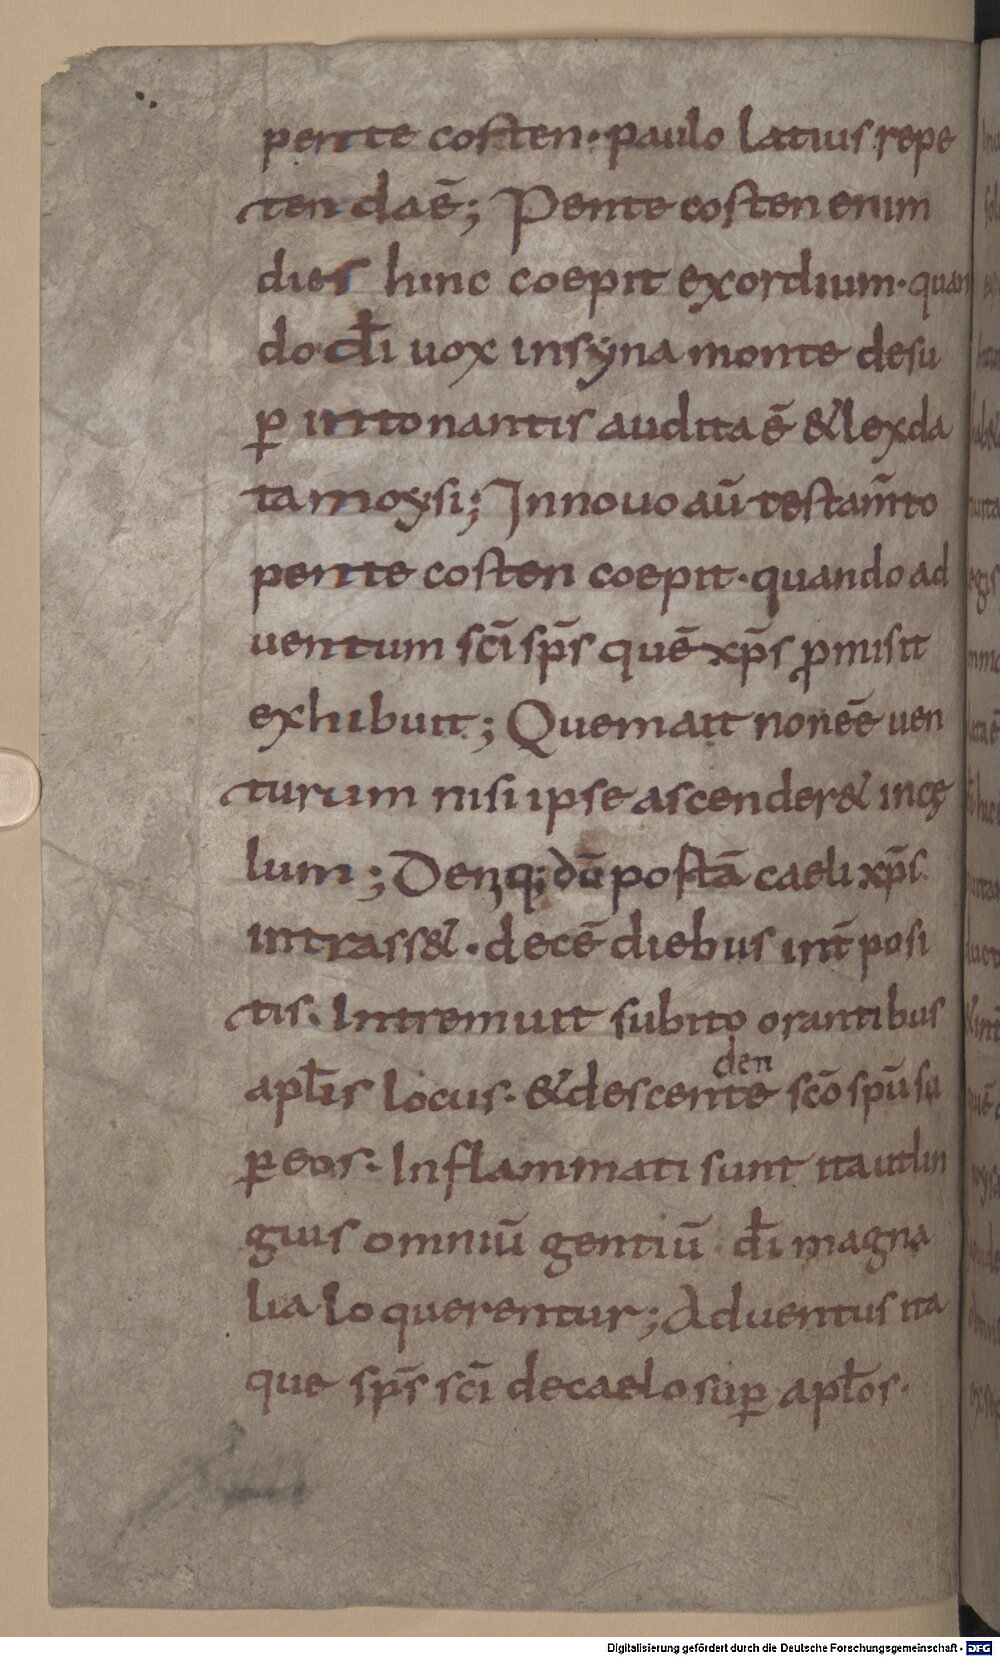 pente costen · paulo latius repe
ten da ē; Pente costen enim
dies hinc coepit exordium · quan
do d̄i uox insyna monte desu
ꝑ intonantis audita ē & lex da
ta moysi; In nouo aū testam̄to
pente costen coepit · quando ad
uentum sc̄i sp̄s quē xp̄s ꝓmisit
exhibuit; Quem ait non eē uen
turum nisi ipse ascender& in cę
lum; Deniq; dū postā caeli xp̄s
intrass& · decē diebus int̄ posi
tis · Intremuit subito orantibus
apl̄is locus · & descente sc̄o sp̄u su
den
ꝑ eos · Inflammati sunt ita ut lin
guis omniū gentiū d̄i magna
lia loquerentur; Aduentus ita
que sp̄s sc̄i de caelo suꝑ apl̄os ·
Digitalisierung gefördert durch die Deutsche Forschungsgemeinschaft - DFG